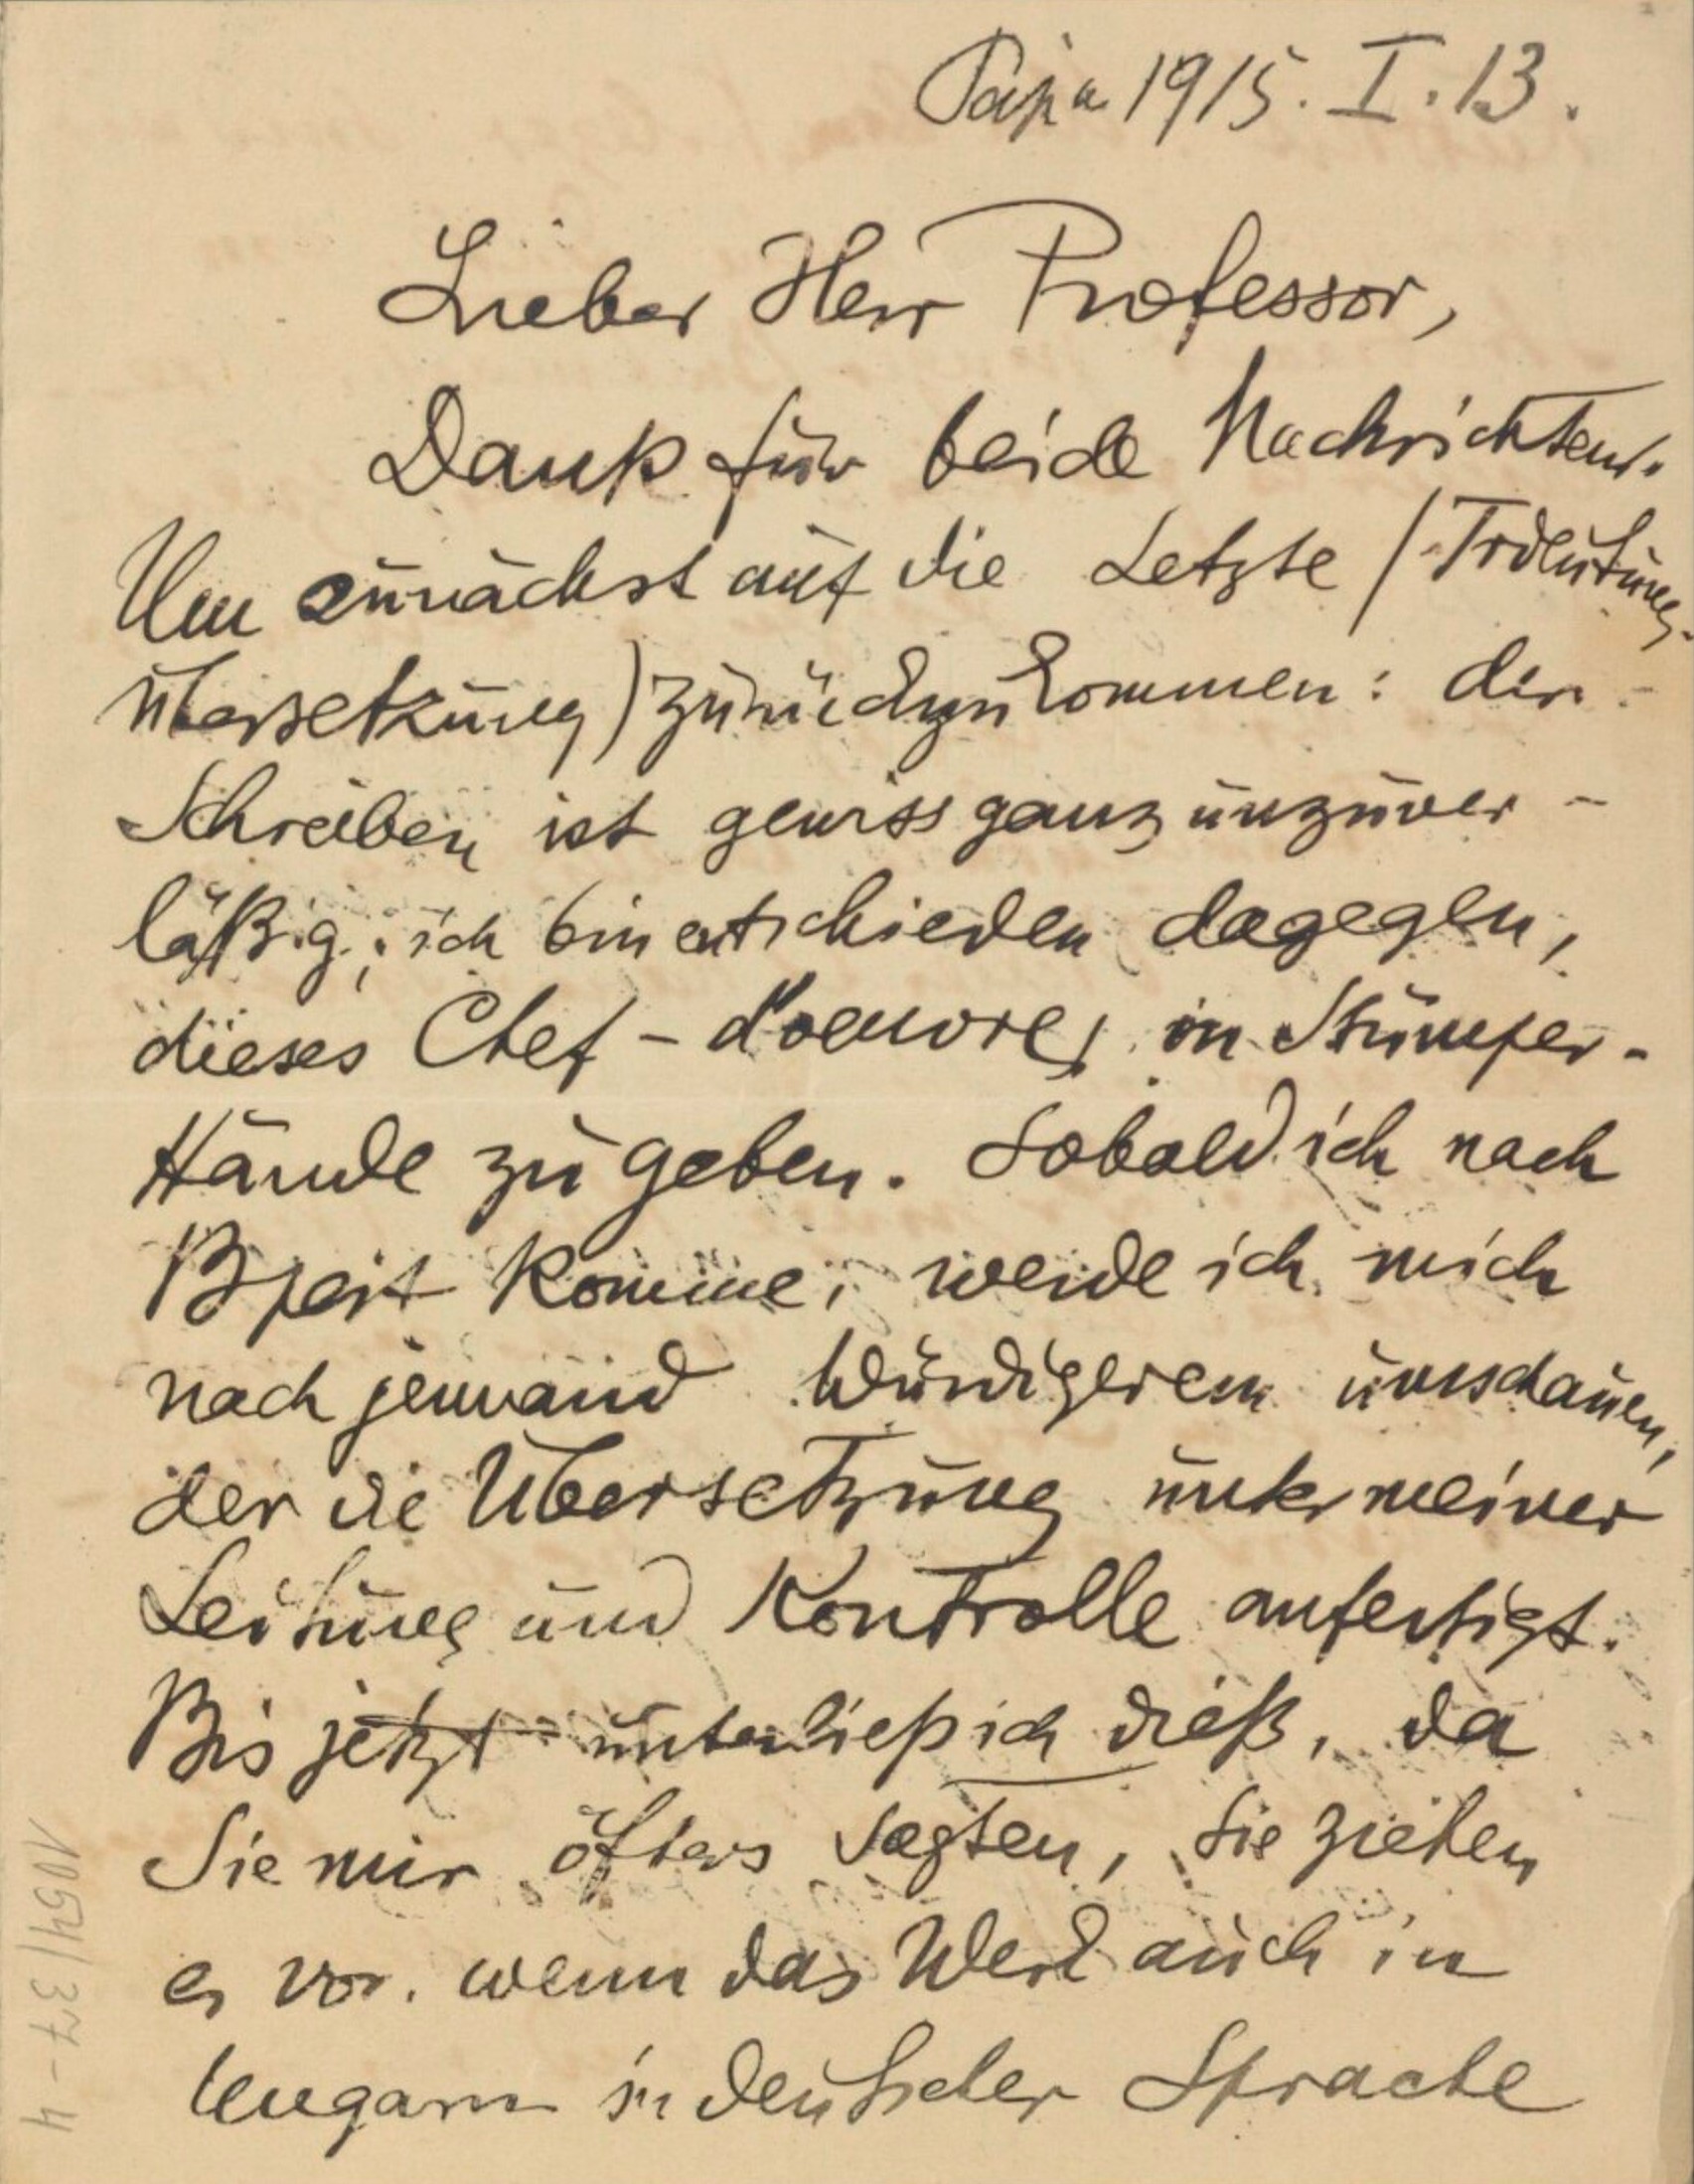 Pápa 1915. I. 13.
Lieber Herr Professor,
Dank für beide Nachrichten.
Um zunächst auf die Letzte (Trdeutung-
übersetzung) zurückzukommen: der
Schreiben ist gewiss ganz unzuver-
läßig; ich bin entschieden dagegen,
dieses Chef-d'oeuvres in Stümper-
Hände zu geben. Sobald ich nach
Bpest komme, werde ich mich
nach jemand Würdigerem umschauen,
der die Übersetzung unter meiner
Leitung und Kontrolle anfertigt.
Bis jetzt unterließ ich dieß, da
Sie mir öfters sagten, Sie ziehen
es vor, wenn das Werk auch in
Ungarn in deutscher Sprache
1054/37-4